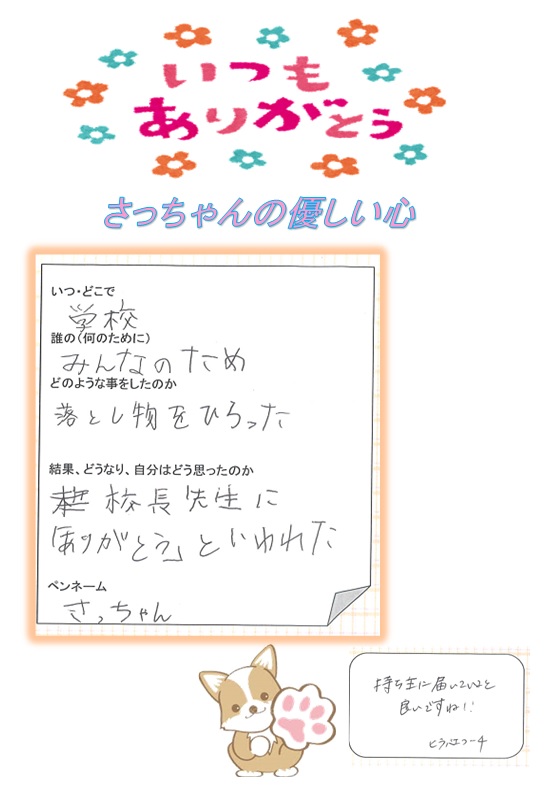 いつも
ありがとう
さっちゃんの優しい心
いつ・どこで
学校
誰の(何のために)
みんなのため
どのような事をしたのか
落とし物をひろった
結果、どうなり、自分はどう思ったのか
校長先生に
「ありがとう」といわれた
ペンネーム
さっちゃん
持ち主に届いていると
良いですね!!
コーチ